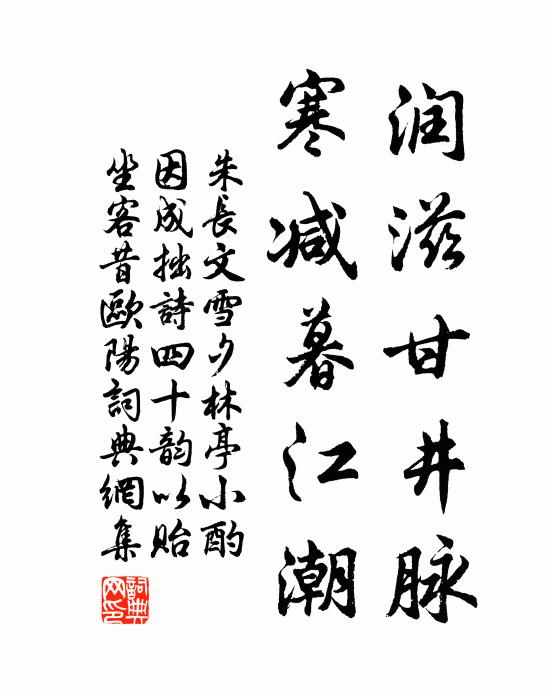 润滋甘井脉
寒减暮江潮
朱長文雪夕林亭小酌
因成拙詩四十韵以貽
坐客昔歐陽詞典網集
詞典
网印